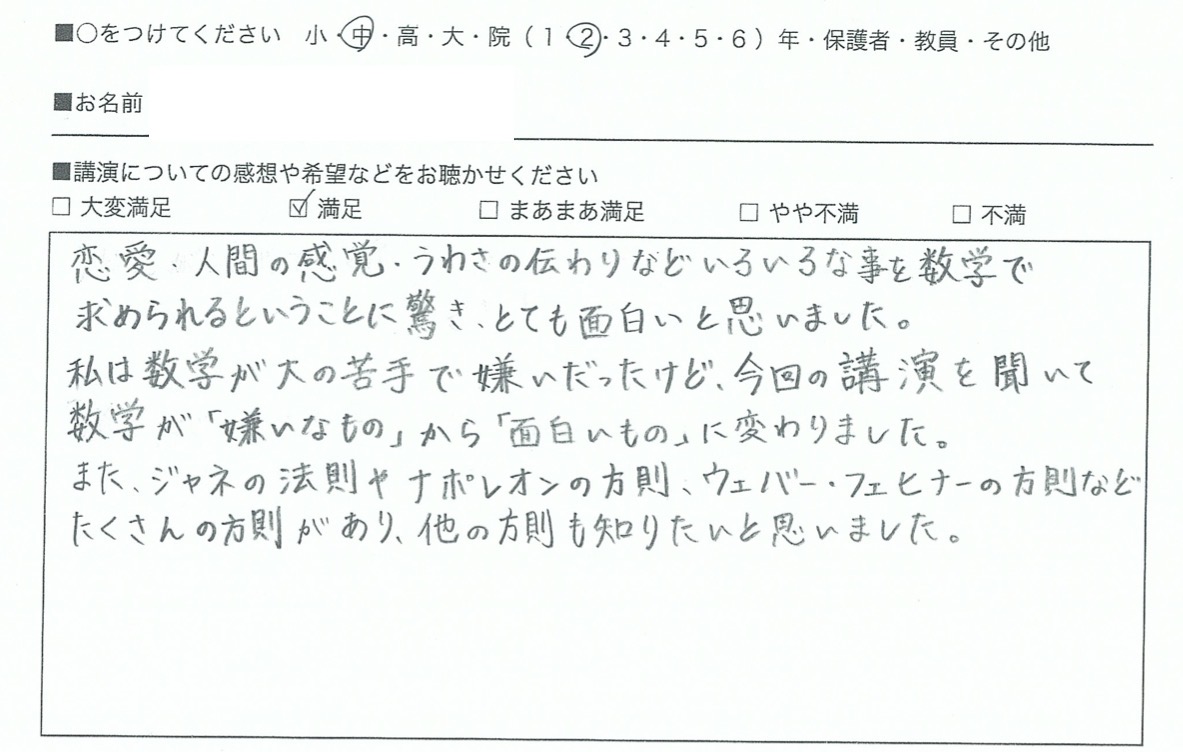 ■○をつけてください 小・中・高・大・院（1・2・3・4・5・6）年・保護者・教員・その他
■お名前
■講演についての感想や希望などをお聴かせください
□ 大変満足 ☑ 満足 □ まあまあ満足 □ やや不満 □ 不満
恋愛・人間の感覚・うわさの伝わりなどいろいろな事を数学で
求められるということに驚き、とても面白いと思いました。
私は数学が大の苦手で嫌いだったけど、今回の講演を聞いて
数学が「嫌いなもの」から「面白いもの」に変わりました。
また、ジャネの法則やナポレオンの方則、ウェバー・フェヒナーの方則など
たくさんの方則があり、他の方則も知りたいと思いました。